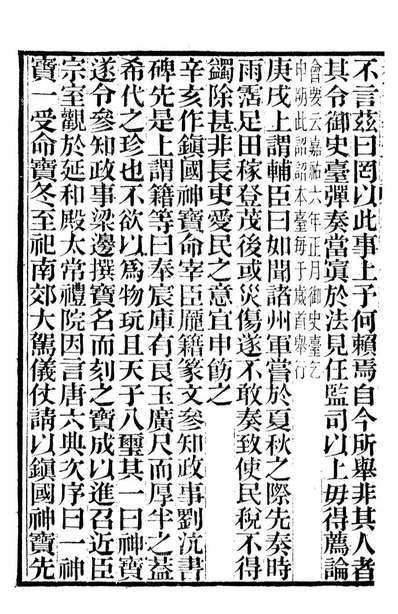 不言茲曰罔以此事上于何賴焉自今所舉非其人者
其令御史臺彈奏當寘於法見任監司以上毋得薦論
會要云嘉祐六年正月御史臺乞
申朔此詔詔本臺每于歲首舉行
庚戌上謂輔臣曰如聞諸州軍嘗於夏秋之際先奏時
雨霑足田稼登茂後或災傷遂不敢奏致使民稅不得
蠲除甚非長吏愛民之意宜申飭之
辛亥作鎮國神寶命宰臣龐籍篆文參知政事劉沆書
碑先是上謂籍等曰奉宸庫有良玉廣尺而厚半之蓋
希代之珍也不欲以為物玩且天子八璽其一曰神寶
遂令參知政事梁邊撰寶名而刻之寶成以進召近臣
宗室觀於延和殿太常禮院因言唐六典次序曰一神
寶一受命寶冬至祀南郊大駕儀仗請以鎮國神寶先